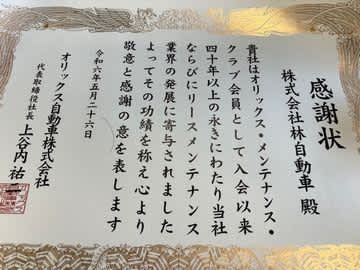 感謝状
株式会社林自動車 殿
貴社はオリックス・メンテナンス・
クラブ会員として入会以来
四十年以上の永きにわたり当社
ならびにリースメンテナンス
業界の発展に寄与されました
よってその功績を称え心より
敬意と感謝の意を表します
令和六年五月二十六日
オリックス自動車株式会社
代表取締役社長 上谷内 祐二